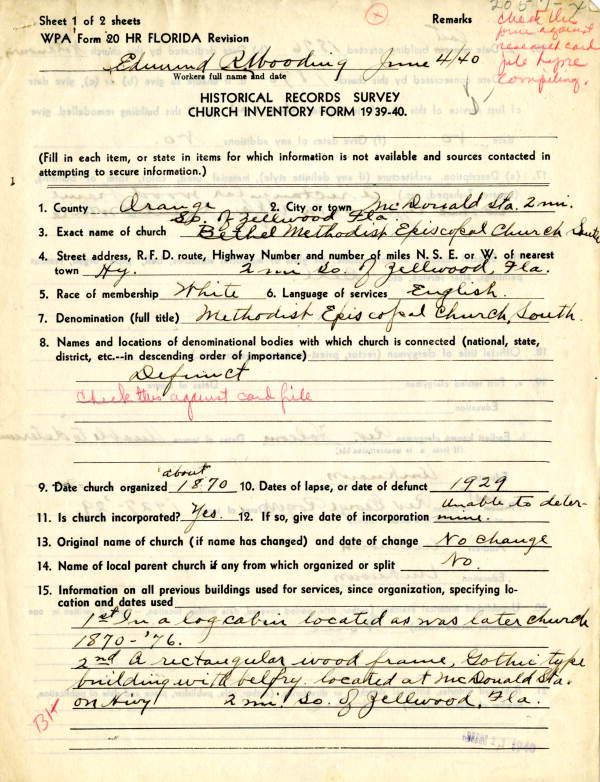 Sheet 1 of 2 sheets
Remarks
WPA Form 20 HR FLORIDA Revision
check this
form against
research card
file before
compiling.
Edmund R. Wooding June 4/40
Workers full name and date
HISTORICAL RECORDS SURVEY
CHURCH INVENTORY FORM 1939-40.
(Fill in each item, or state in items for which information is not available and sources contacted in
attempting to secure information.)
1. County Orange 2. City or town McDonald Sta. 2 mi.
So. of Zellwood Fla.
3. Exact name of church Bethel Methodist Episcopal Church South
4. Street address, R.F.D. route, Highway Number and number of miles N. S. E. or W. of nearest
town Hy. 2 mi So. of Zellwood, Fla.
5. Race of membership White 6. Language of services English.
7. Denomination (full title) Methodist Episcopal Church, South.
8. Names and locations of denominational bodies with which church is connected (national, state,
district, etc.--in descending order of importance)
Defunct
Check this against card file
9. Date church organized about 1870 10. Dates of lapse, or date of defunct 1929
11. Is church incorporated? Yes. 12. If so, give date of incorporation Unable to deter-
mine.
13. Original name of church (if name has changed) and date of change No change
14. Name of local parent church if any from which organized or split No.
15. Information on all previous buildings used for services, since organization, specifying lo-
cation and dates used
1st In a log cabin located as was later church
1870-'76.
2nd A rectangular wood frame, Gothic type
building with belfry. located at McDonald Sta.
on Hwy 2 mi. So. of Zellwood, Fla.